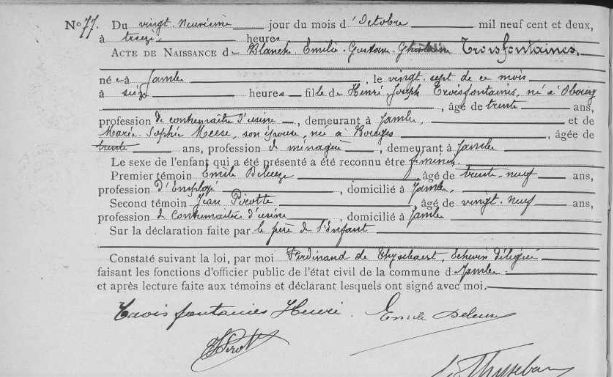 No 77. Du vingt-neuvième jour du mois d'Octobre mil neuf cent et deux,
à treize heures
ACTE DE NAISSANCE de Blanche Emilie Gustave Ghislain Troisfontaines.
née à Jambes, le vingt-sept de ce mois
à heures fille de Henri Joseph Troisfontaines, né à
, âgé de trente ans,
profession de contremaître d'usine, demeurant à Jambes et de
Marie Sophie son épouse, née à âgée de
trente ans, profession de ménagère, demeurant à Jambes
Le sexe de l'enfant qui a été présenté a été reconnu être féminin.
Premier témoin Emile âgé de trente-neuf ans,
profession d'Employé, domicilié à Jambes.
Second témoin Jean Pirotte âgé de vingt-neuf ans,
profession de contremaître d'usine, domicilié à Jambes
Sur la déclaration faite par le père de l'Enfant
Constaté suivant la loi, par moi Ferdinand de Thysebaert, Echevin délégué
faisant les fonctions d'officier public de l'état civil de la commune de Jambes
et après lecture faite aux témoins et déclarant lesquels ont signé avec moi.
Troisfontaines Henri. Emile
Pirotte
de Thysebaert